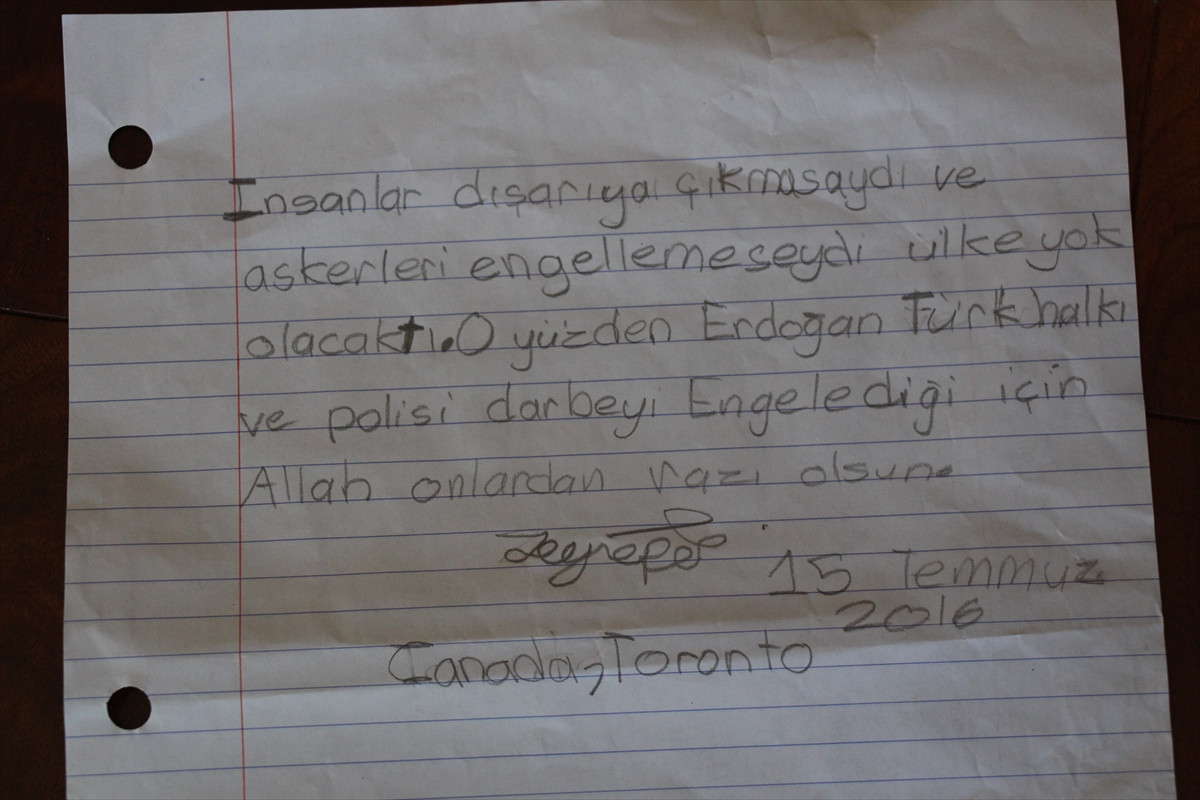 Insanlar dışarıya çıkmasaydı ve
askerleri engellemeseydi ülke yok
olacaktı. O yüzden Erdoğan Türk halkı
ve polisi darbeyi Engelediği için
Allah onlardan razı olsun.
15 Temmuz
2016
Canada, Toronto